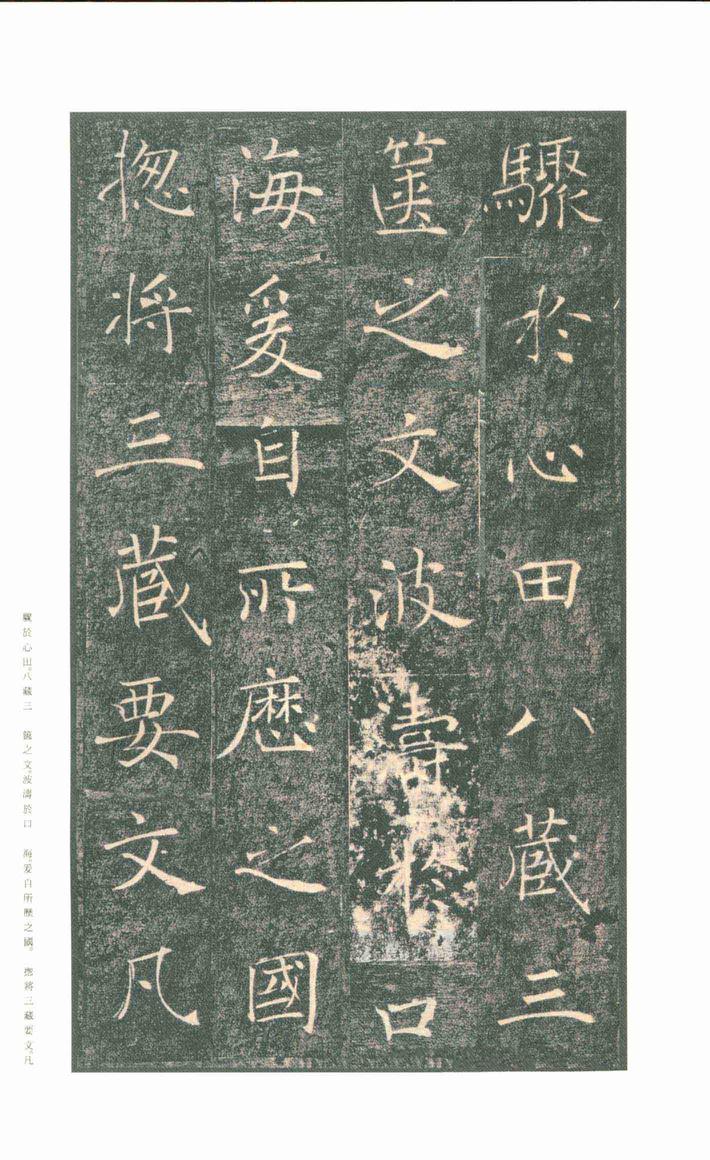 驟於心田八藏三
篋之文波濤於口
海爰自所歷之國
揔將三藏要文凡
驟於心田。八藏三　篋之文。波濤於口　海。爰自所歷之國。　揔將三藏要文。凡